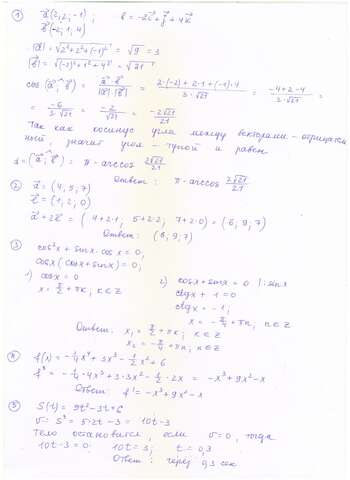 ① a⃗(2; 2; -1); b⃗ = -2i⃗ + j⃗ + 4k⃗
b⃗(-2; 1; 4)
|a⃗| = √(2² + 2² + (-1)²) = √9 = 3
|b⃗| = √((-2)² + 1² + 4²) = √21
cos(a⃗^b⃗) = a⃗·b⃗ / |a⃗|·|b⃗| = (2·(-2) + 2·1 + (-1)·4) / (3·√21) = (-4+2-4) / (3√21) =
= -6 / (3·√21) = -2/√21 = -2√21/21
Так как косинус угла между векторами - отрицатель
ный, значит угол - тупой и равен
α = (a⃗^b⃗) = π - arccos 2√21/21
Ответ: π - arccos 2√21/21
② a⃗ = (4; 5; 7)
b⃗ = (1; 2; 0)
a⃗ + 2b⃗ = (4+2·1; 5+2·2; 7+2·0) = (6; 9; 7)
Ответ: (6; 9; 7)
③ cos²x + sinx·cosx = 0;
cosx(cosx + sinx) = 0;
1) cosx = 0 2) cosx + sinx = 0 |: sinx
x = π/2 + πk; k∈Z ctgx + 1 = 0
ctgx = -1;
x = -π/4 + πn; n∈Z
Ответ: x₁ = π/2 + πk; k∈Z
x₂ = -π/4 + πn; n∈Z
④ f(x) = -1/4x⁴ + 3x³ - 1/2x² + 6
f' = -1/4·4x³ + 3·3x² - 1/2·2x = -x³ + 9x² - x
Ответ: f' = -x³ + 9x² - x
⑤ S(t) = 5t² - 3t + 6
v = S' = 5·2t - 3 = 10t - 3
Тело остановится, если v = 0, тогда
10t - 3 = 0; 10t = 3; t = 0,3
Ответ: через 0,3 сек